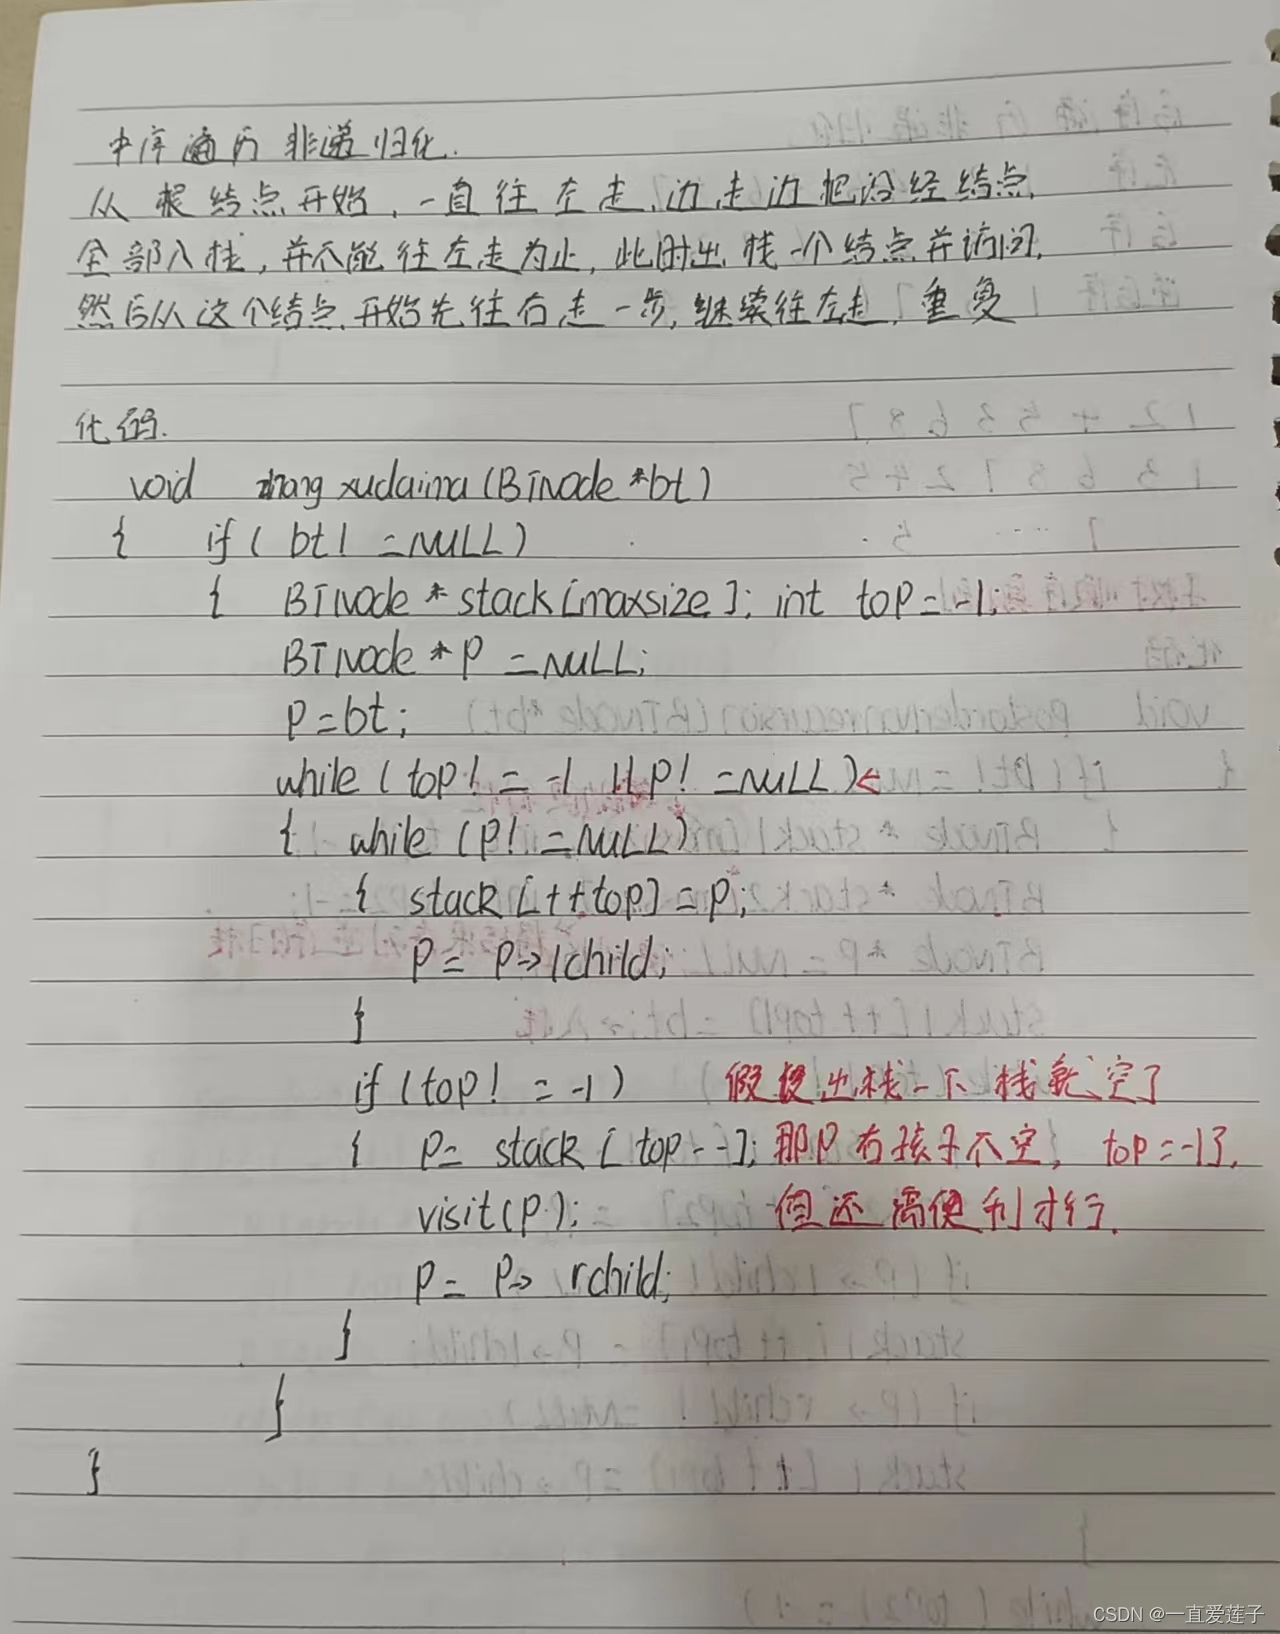 中序遍历 非递归化.
从根结点开始,一直往左走,边走边把沿经结点,
全部入栈,并不能往左走为止,此时出栈一个结点并访问,
然后从这个结点,开始先往右走一步,继续往左走,重复
代码.
void zhangxudaima(BTNode *bt)
{ if( bt! =NULL)
{ BTNode * stack[maxsize]; int top=-1;
BTNode * P =NULL;
P=bt;
while ( top! = -1 || P! =NULL)<
{ while (P! =NULL)
{ stack [++top] = P;
P= P->lchild;
}
if (top! = -1) 假使出栈一下栈就空了
{ P= stack [ top--]; 那P右孩子不空, top=-1了,
visit(P); 但还需便利才行.
P= P-> rchild;
}
}
}
CSDN @一直爱莲子